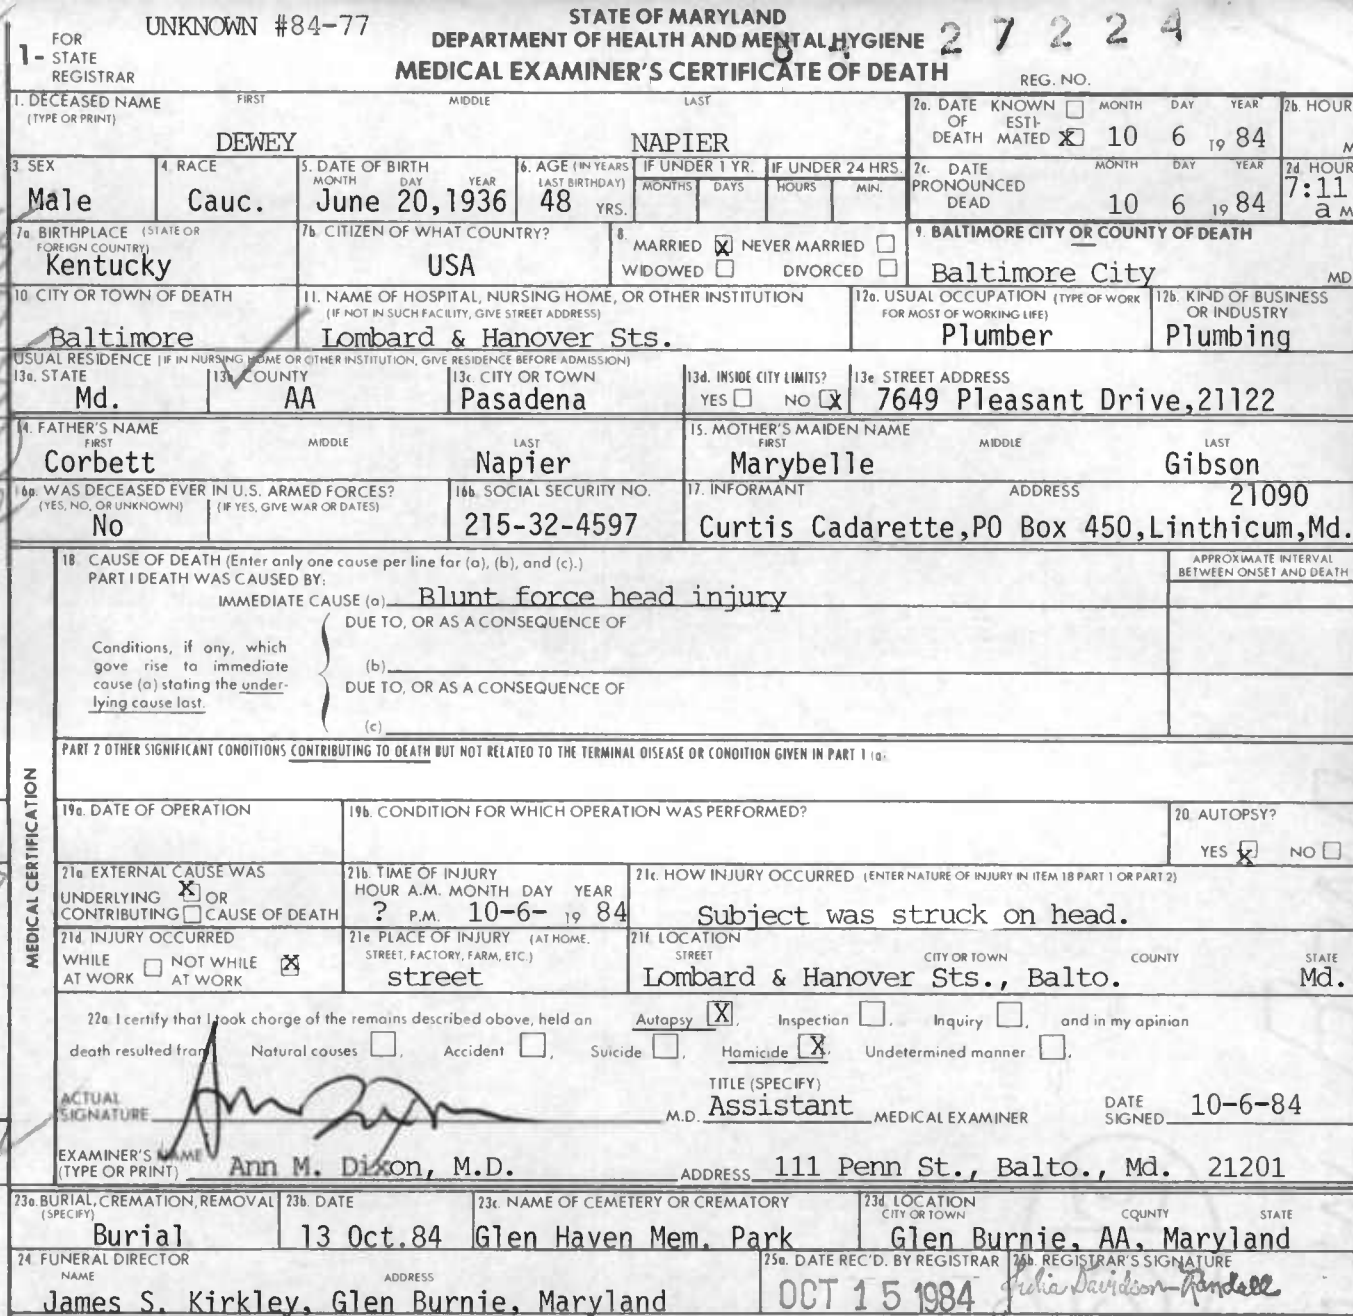 UNKNOWN #84-77
STATE OF MARYLAND
DEPARTMENT OF HEALTH AND MENTAL HYGIENE
MEDICAL EXAMINER'S CERTIFICATE OF DEATH
1- FOR STATE REGISTRAR
27224
REG. NO.
1. DECEASED NAME (TYPE OR PRINT) FIRST MIDDLE LAST
DEWEY NAPIER
2a. DATE OF DEATH KNOWN ESTIMATED X MONTH DAY YEAR
10 6 19 84
2b. HOUR
M
3 SEX
Male
4. RACE
Cauc.
5. DATE OF BIRTH MONTH DAY YEAR
June 20,1936
6. AGE (IN YEARS LAST BIRTHDAY)
48 YRS.
IF UNDER 1 YR. MONTHS DAYS
IF UNDER 24 HRS. HOURS MIN.
2c. DATE PRONOUNCED DEAD MONTH DAY YEAR
10 6 19 84
2d HOUR
7:11 a M
7a BIRTHPLACE (STATE OR FOREIGN COUNTRY)
Kentucky
7b. CITIZEN OF WHAT COUNTRY?
USA
8. MARRIED X NEVER MARRIED
WIDOWED DIVORCED
9. BALTIMORE CITY OR COUNTY OF DEATH
Baltimore City MD
10 CITY OR TOWN OF DEATH
Baltimore
11. NAME OF HOSPITAL, NURSING HOME, OR OTHER INSTITUTION
(IF NOT IN SUCH FACILITY, GIVE STREET ADDRESS)
Lombard & Hanover Sts.
12a. USUAL OCCUPATION (TYPE OF WORK FOR MOST OF WORKING LIFE)
Plumber
12b. KIND OF BUSINESS OR INDUSTRY
Plumbing
USUAL RESIDENCE (IF IN NURSING HOME OR OTHER INSTITUTION, GIVE RESIDENCE BEFORE ADMISSION)
13a. STATE
Md.
13b. COUNTY
AA
13c. CITY OR TOWN
Pasadena
13d. INSIDE CITY LIMITS?
YES NO X
13e STREET ADDRESS
7649 Pleasant Drive,21122
14. FATHER'S NAME FIRST MIDDLE LAST
Corbett Napier
15. MOTHER'S MAIDEN NAME FIRST MIDDLE LAST
Marybelle Gibson
16a. WAS DECEASED EVER IN U.S. ARMED FORCES?
(YES, NO, OR UNKNOWN) (IF YES, GIVE WAR OR DATES)
No
16b. SOCIAL SECURITY NO.
215-32-4597
17. INFORMANT ADDRESS
21090
Curtis Cadarette,PO Box 450,Linthicum,Md.
18. CAUSE OF DEATH (Enter only one cause per line for (a), (b), and (c).)
PART I DEATH WAS CAUSED BY:
APPROXIMATE INTERVAL BETWEEN ONSET AND DEATH
IMMEDIATE CAUSE (a) Blunt force head injury
DUE TO, OR AS A CONSEQUENCE OF
Conditions, if any, which gave rise to immediate cause (a) stating the underlying cause last.
(b)
DUE TO, OR AS A CONSEQUENCE OF
(c)
PART 2 OTHER SIGNIFICANT CONDITIONS CONTRIBUTING TO DEATH BUT NOT RELATED TO THE TERMINAL DISEASE OR CONDITION GIVEN IN PART 1 (a)
MEDICAL CERTIFICATION
19a. DATE OF OPERATION
19b. CONDITION FOR WHICH OPERATION WAS PERFORMED?
20 AUTOPSY?
YES X NO
21a EXTERNAL CAUSE WAS
UNDERLYING X OR
CONTRIBUTING CAUSE OF DEATH
21b. TIME OF INJURY
HOUR A.M. MONTH DAY YEAR
? P.M. 10-6- 19 84
21c. HOW INJURY OCCURRED (ENTER NATURE OF INJURY IN ITEM 18 PART 1 OR PART 2)
Subject was struck on head.
21d INJURY OCCURRED
WHILE AT WORK NOT WHILE AT WORK X
21e PLACE OF INJURY (AT HOME, STREET, FACTORY, FARM, ETC.)
street
21f. LOCATION
STREET CITY OR TOWN COUNTY STATE
Lombard & Hanover Sts., Balto. Md.
22a I certify that I took charge of the remains described above, held an Autopsy X, Inspection, Inquiry, and in my opinion
death resulted from Natural causes, Accident, Suicide, Homicide X, Undetermined manner.
ACTUAL SIGNATURE Ann Dixon M.D.
TITLE (SPECIFY)
Assistant MEDICAL EXAMINER
DATE SIGNED 10-6-84
EXAMINER'S NAME (TYPE OR PRINT) Ann M. Dixon, M.D.
ADDRESS 111 Penn St., Balto., Md. 21201
23a. BURIAL, CREMATION, REMOVAL (SPECIFY)
Burial
23b. DATE
13 Oct.84
23c. NAME OF CEMETERY OR CREMATORY
Glen Haven Mem. Park
23d. LOCATION
CITY OR TOWN COUNTY STATE
Glen Burnie, AA, Maryland
24 FUNERAL DIRECTOR
NAME ADDRESS
James S. Kirkley, Glen Burnie, Maryland
25a. DATE REC'D. BY REGISTRAR
OCT 15 1984
25b. REGISTRAR'S SIGNATURE
Julia Davidson-Randall